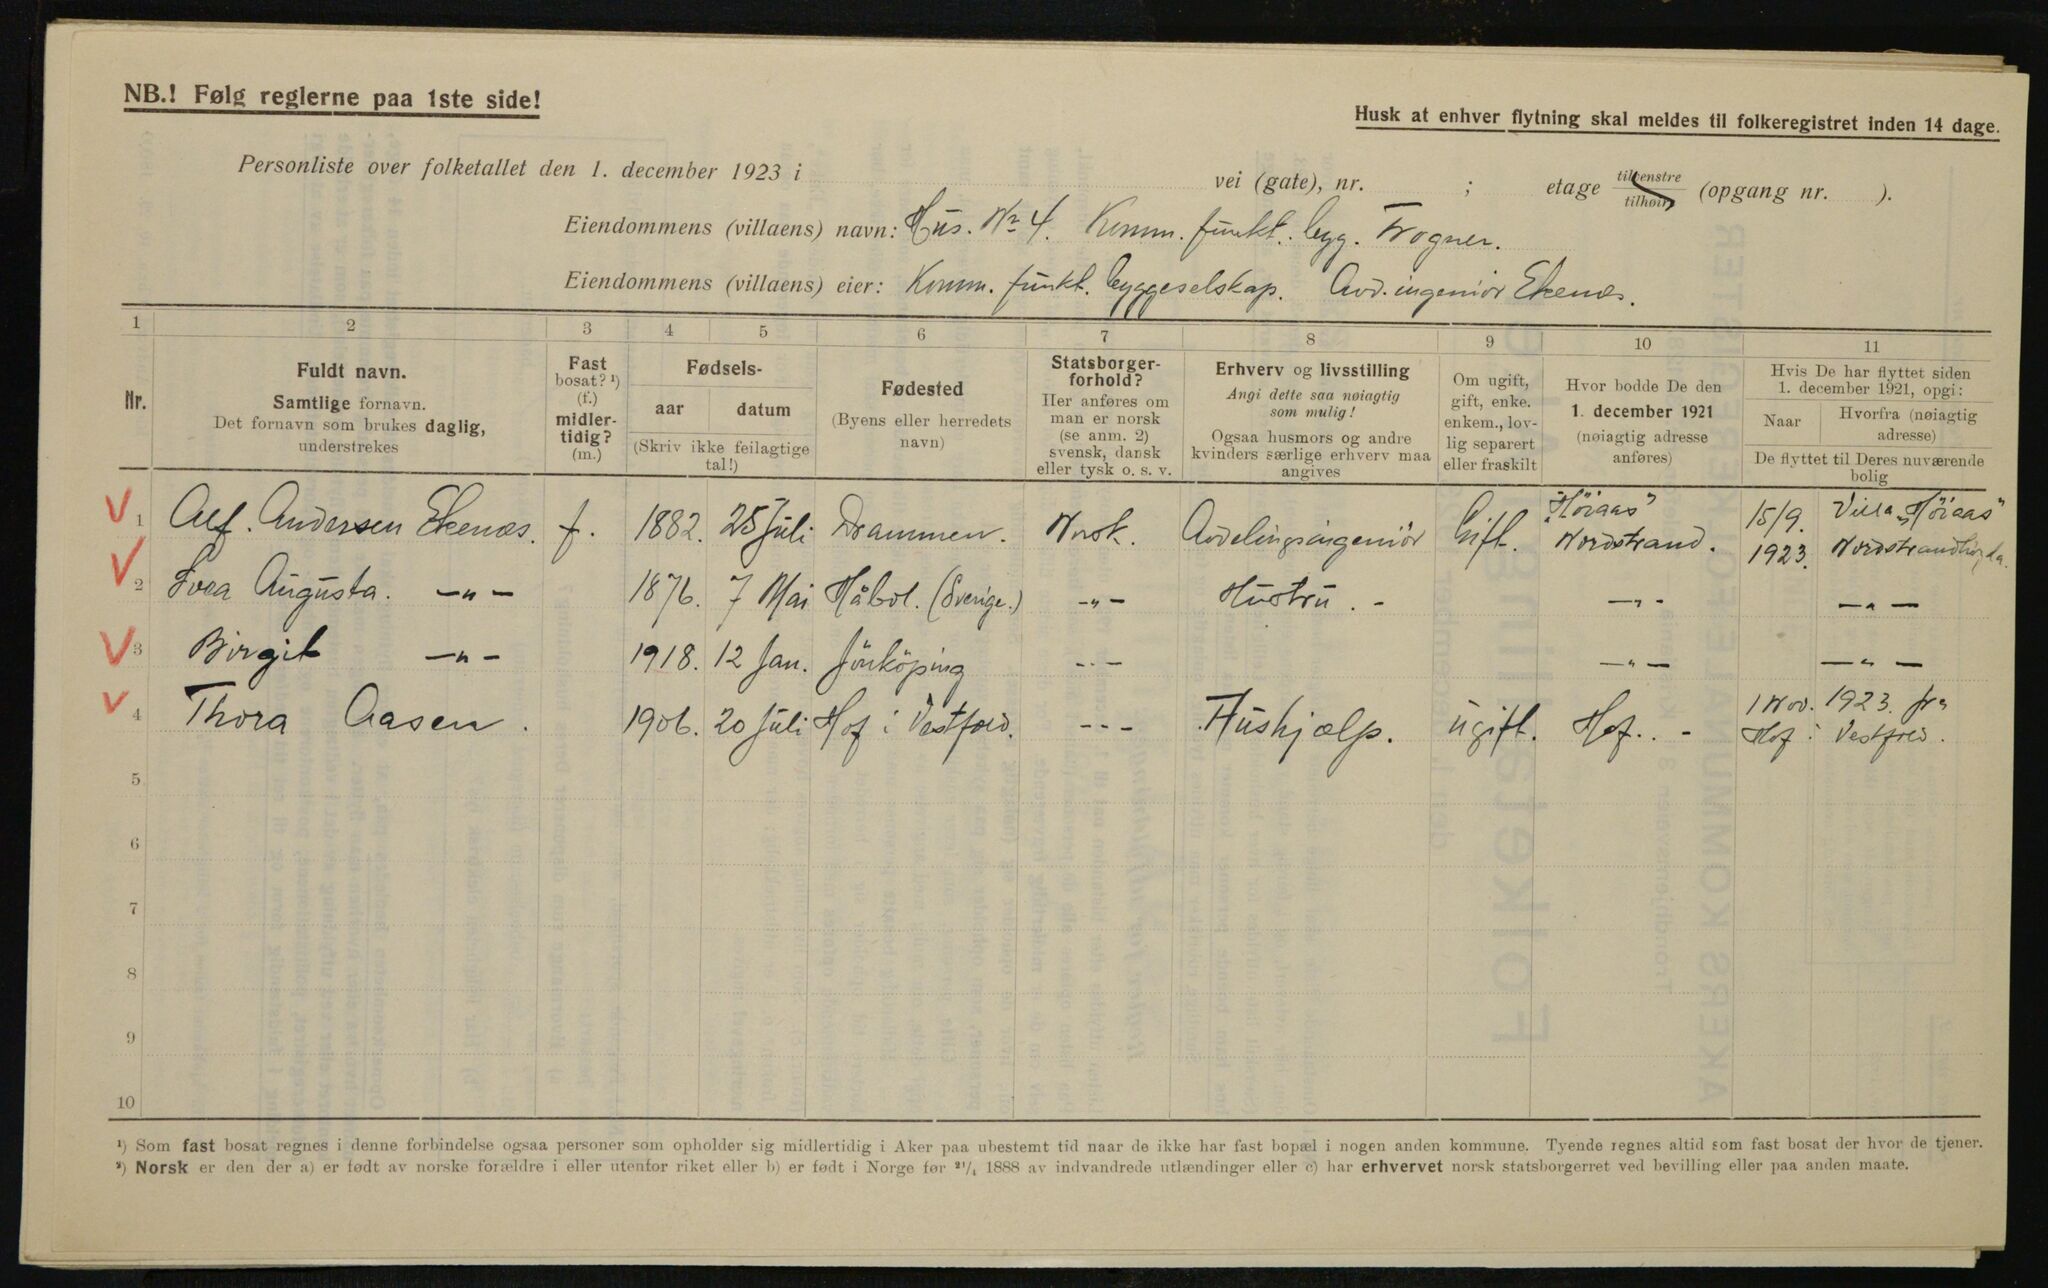 NB.! Følg reglerne paa 1ste side!
Husk at enhver flytning skal meldes til folkeregistret inden 14 dage.
Personliste over folketallet den 1. december 1923 i vei (gate), nr. ; etage tilvenstre tilhøire (opgang nr. ).
Eiendommens (villaens) navn: Hus. Nr 4. Komm. funkt. bygg. Frogner.
Eiendommens (villaens) eier: Komm. funkt. byggeselskap. Avd. ingeniör Ekenæs.
1 2 3 4 5 6 7 8 9 10 11
Nr.
Fuldt navn.
Samtlige fornavn.
Det fornavn som brukes daglig,
understrekes
Fast
bosat? ¹)
(f.)
midler-
tidig?
(m.)
Fødsels-
aar datum
(Skriv ikke feilagtige
tal!)
Fødested
(Byens eller herredets
navn)
Statsborger-
forhold?
Her anføres om
man er norsk
(se anm. 2)
svensk, dansk
eller tysk o. s. v.
Erhverv og livsstilling
Angi dette saa nøiagtig
som mulig!
Ogsaa husmors og andre
kvinders særlige erhverv maa
angives
Om ugift,
gift, enke.
enkem., lov-
lig separert
eller fraskilt
Hvor bodde De den
1. december 1921
(nøiagtig adresse
anføres)
Hvis De har flyttet siden
1. december 1921, opgi:
Naar
Hvorfra (nøiagtig
adresse)
De flyttet til Deres nuværende
bolig
1 Alf. Andersen Ekenæs. f. 1882. 25 Juli Drammen. Norsk. Avdelingsingeniör Gift. "Höiaas" Nordstrand. 15/9. 1923. Villa "Höiaas"
2 Augusta. —"— 1876. 7 Mai Håbol. (Sverige.) —"— Hustru. - —"— —"—
3 Birgit —"— 1918. 12 Jan. Jönköping —"— —"— —"—
4 Thora Aasen. 1906. 20 Juli Hof i Vestfold. —"— Hushjælp. ugift. Hof. . - 1 Nov. 1923. fra
Hof i Vestfold.
5
6
7
8
9
10
¹) Som fast bosat regnes i denne forbindelse ogsaa personer som opholder sig midlertidig i Aker paa ubestemt tid naar de ikke har fast bopæl i nogen anden kommune. Tyende regnes altid som fast bosat der hvor de tjener.
²) Norsk er den der a) er født av norske forældre i eller utenfor riket eller b) er født i Norge før ²¹/₄ 1888 av indvandrede utlændinger eller c) har erhvervet norsk statsborgerret ved bevilling eller paa anden maate.